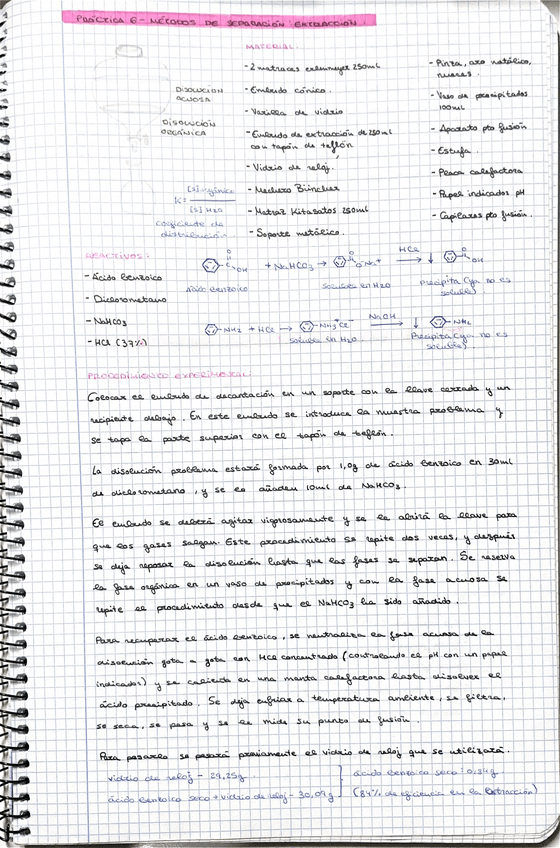 PRÁCTICA 6 - MÉTODOS DE SEPARACIÓN: EXTRACCIÓN.
MATERIAL.
- 2 matraces erlenmeyer 250mL
- Embudo cónico.
- Varilla de vidrio
- Embudo de extracción de 250mL
con tapón de teflón.
- Vidrio de reloj.
- Mechero Büncher
- Matraz Kitasatos 250mL
- Soporte metálico.
- Pinza, aro metálico,
nueces.
- Vaso de precipitados
100mL
- Aparato pto fusión
- Estufa.
- Placa calefactora
- Papel indicador pH
- Capilares pto fusión.
DISOLUCIÓN
ACUOSA
DISOLUCIÓN
ORGÁNICA
K = [S] orgánica
[S] H2O
coeficiente de
distribución
REACTIVOS:
- Ácido Benzoico
- Diclorometano
- NaHCO3
- HCl (37%)
OH + NaHCO3 → O-Na+ HCl → ↓ OH
ácido benzoico
soluble en H2O
Precipita (ya no es
soluble)
NH2 + HCl → NH3+Cl- NaOH → ↓ NH2
soluble en H2O
Precipita (ya no es
soluble)
PROCEDIMIENTO EXPERIMENTAL
Colocar el embudo de decantación en un soporte con la llave cerrada y un
recipiente debajo. En este embudo se introduce la muestra problema y
se tapa la parte superior con el tapón de teflón.
La disolución problema estará formada por 1,0g de ácido benzoico en 30mL
de diclorometano, y se le añaden 10mL de NaHCO3.
El embudo se deberá agitar vigorosamente y se le abrirá la llave para
que los gases salgan. Este procedimiento se repite dos veces, y después
se deja reposar la disolución hasta que las fases se separan. Se reserva
la fase orgánica en un vaso de precipitados y con la fase acuosa se
repite el procedimiento desde que el NaHCO3 ha sido añadido.
Para recuperar el ácido benzoico, se neutraliza la fase acuosa de la
disolución gota a gota con HCl concentrado (controlando el pH con un papel
indicador) y se calienta en una manta calefactora hasta disolver el
ácido precipitado. Se deja enfriar a temperatura ambiente, se filtra,
se seca, se pesa y se le mide su punto de fusión.
Para pesarlo se pesará previamente el vidrio de reloj que se utilizará.
vidrio de reloj - 29,25g
ácido benzoico seco + vidrio de reloj - 30,09g
ácido benzoico seco: 0,84g
(84% de eficiencia en la extracción)